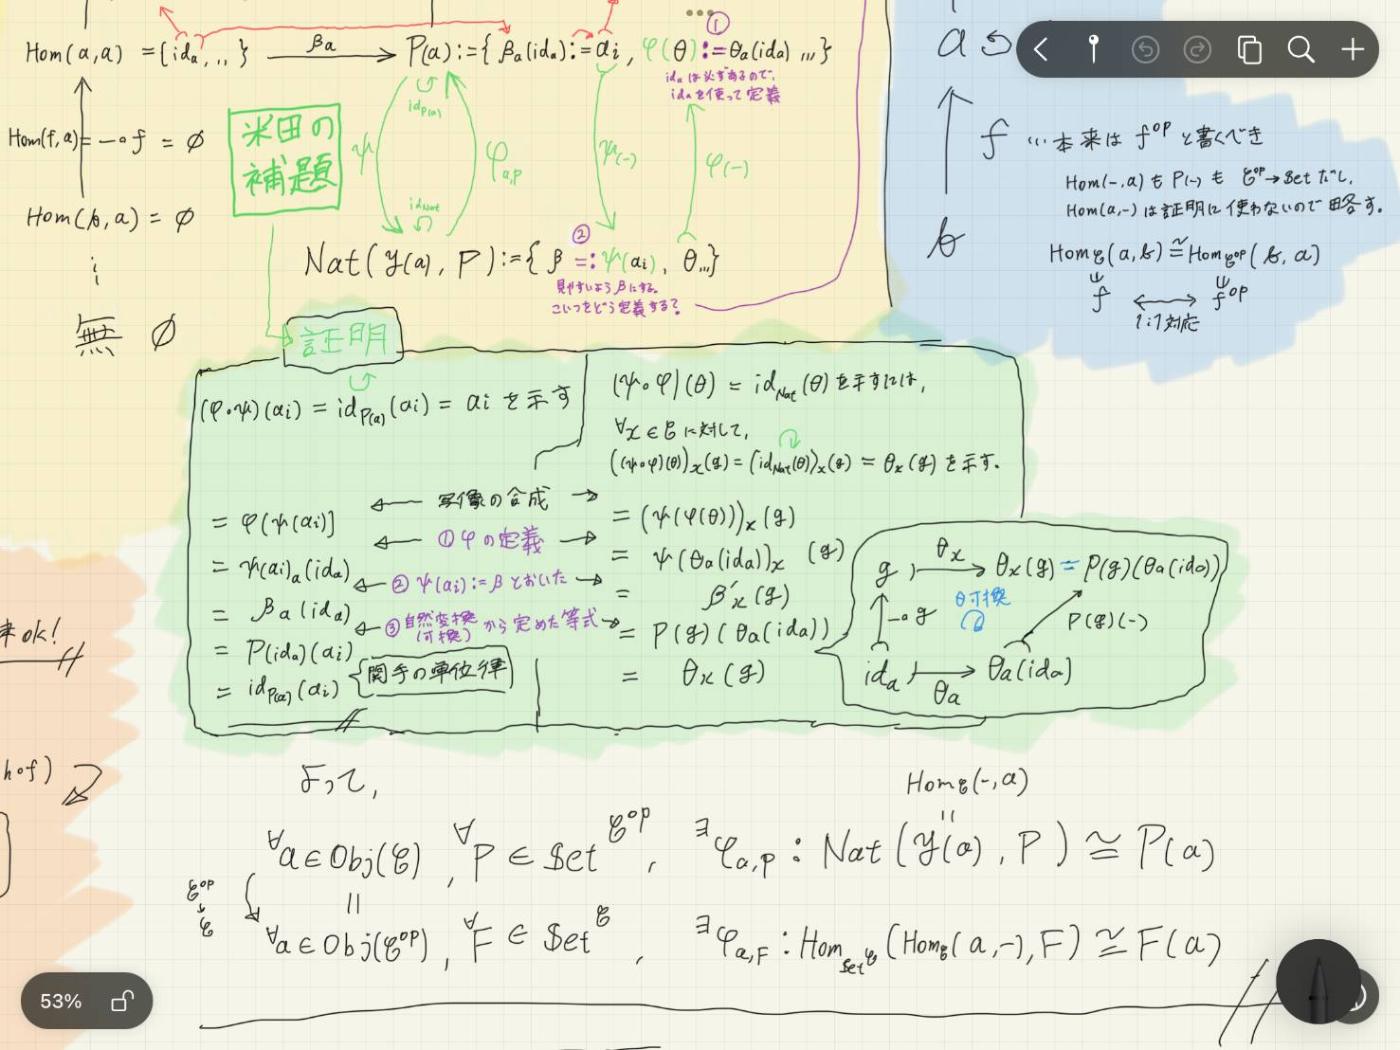 Hom(a,a) = {id_a, ,, }
β_a
P(a) := { β_a(id_a) := a_i , φ(θ) := θ_a(id_a) ,,, }
①
id_a は必ずあるので、
id_a を使って定義
id_P(a)
Hom(f,a) = -∘f = ∅
米田の
補題
ψ
φ_a,P
ψ(-)
φ(-)
id_Nat
Hom(b,a) = ∅
②
Nat( y(a), P ) := { β =: ψ(a_i), θ,,, }
見やすいようβにする。
こいつをどう定義する?
無 ∅
a
f …本来は f^op と書くべき
Hom(-,a) も P(-) も C^op → Set だし,
Hom(a,-) は証明に使わないので略す。
b
Hom_C(a,b) ≅ Hom_C^op(b,a)
f ⟷ f^op
1:1対応
証明
(φ∘ψ)(a_i) = id_P(a)(a_i) = a_i を示す
= φ(ψ(a_i))
= ψ(a_i)_a(id_a)
= β_a(id_a)
= P(id_a)(a_i)
= id_P(a)(a_i)
← 写像の合成 →
← ①φの定義 →
← ② ψ(a_i) := β とおいた →
← ③自然変換(可換)から定めた等式 →
関手の単位律
(ψ∘φ)(θ) = id_Nat(θ) を示すには,
∀x ∈ C に対して,
((ψ∘φ)(θ))_x(g) = (id_Nat(θ))_x(g) = θ_x(g) を示す.
= (ψ(φ(θ)))_x(g)
= ψ(θ_a(id_a))_x (g)
= β'_x(g)
= P(g)(θ_a(id_a))
= θ_x(g)
θ_x
g ↦ θ_x(g) = P(g)(θ_a(id_a))
-∘g
θ可換
P(g)(-)
id_a ↦ θ_a(id_a)
θ_a
ok!
h∘f)
よって,
Hom_C(-,a)
∀a ∈ Obj(C), ∀P ∈ Set^C^op, ∃φ_a,P : Nat(y(a), P) ≅ P(a)
C^op
↓
C
∀a ∈ Obj(C^op), ∀F ∈ Set^C, ∃φ_a,F : Hom_Set^C(Hom_C(a,-), F) ≅ F(a)
53%